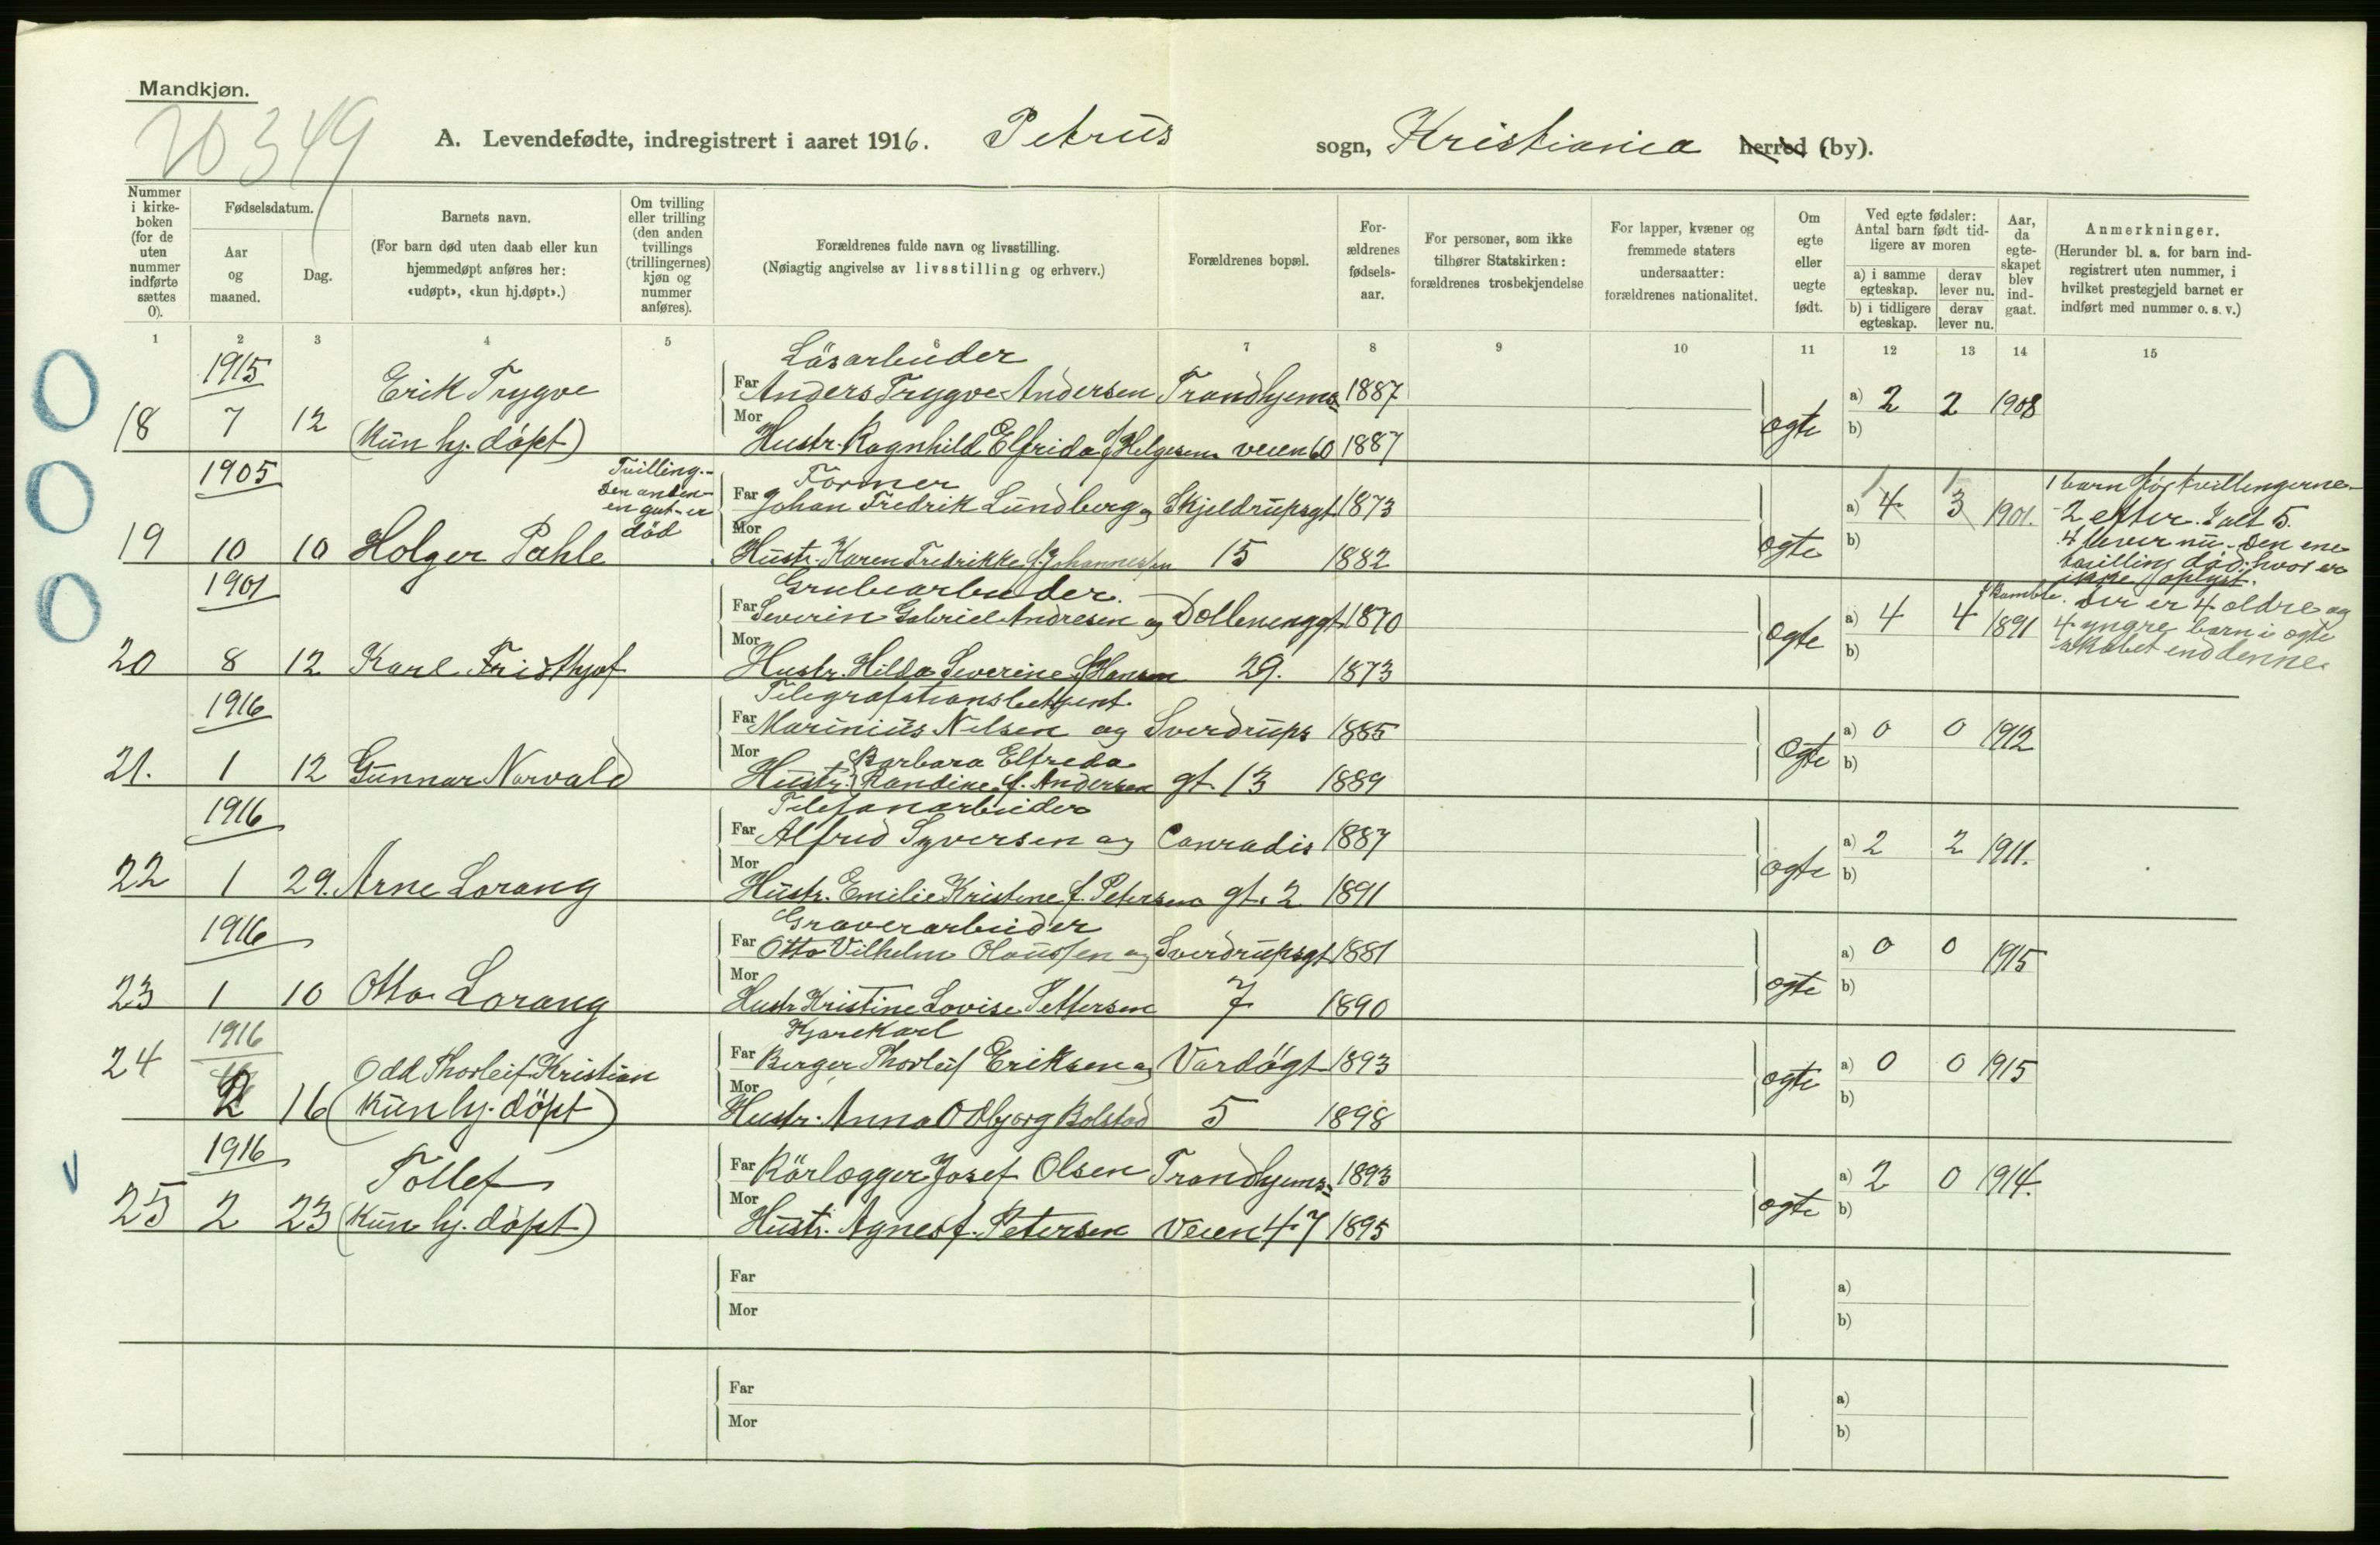 Mandkjøn.
20349
A. Levendefødte, indregistrert i aaret 1916. Petrus sogn, Kristiania herred (by).
Nummer i kirkeboken (for de uten nummer indførte sættes 0).
Fødselsdatum.
Aar og maaned.
Dag.
Barnets navn.
(For barn død uten daab eller kun hjemmedøpt anføres her: «udøpt», «kun hj.døpt».)
Om tvilling eller trilling (den anden tvillings (trillingernes) kjøn og nummer anføres).
Forældrenes fulde navn og livsstilling.
(Nøiagtig angivelse av livsstilling og erhverv.)
Forældrenes bopæl.
Forældrenes fødselsaar.
For personer, som ikke tilhører Statskirken: forældrenes trosbekjendelse
For lapper, kvæner og fremmede staters undersaatter: forældrenes nationalitet.
Om egte eller uegte født.
Ved egte fødsler: Antal barn født tidligere av moren
a) i samme egteskap.
derav lever nu.
b) i tidligere egteskap.
derav lever nu.
Aar, da egteskapet blev indgaat.
Anmerkninger.
(Herunder bl. a. for barn indregistrert uten nummer, i hvilket prestegjeld barnet er indført med nummer o. s. v.)
1 2 3 4 5 6 7 8 9 10 11 12 13 14 15
1915 Läsarbeider
Erik Trygve Far Anders Trygve Andersen Trondhjems- 1887 a) 2 2 1908
18 7 12 (kun hj. döpt) Mor Hustr. Ragnhild Elfrida f. Helgesen veien 60 1887 egte b)
1905 Tvilling.- Former 1 barn før tvillingerne
Den anden Far Johan Fredrik Lundberg og Skjeldrupsgt. 1873 a) 4 3 1901. - 2 efter. I alt 5.
en gut - er død Mor 4 lever nu. Den ene
19 10 10 Holger Pahle Hustr. Karen Fredrikke f. Johannessen 15 1882 egte b) tvilling död, hvor er
1901 Grubearbeider. ikke oplyst.
Far Severin Gabriel Andresen og Dölenenggt. 1870 a) 4 4 1891 Bamble. Der er 4 ældre og
Mor 4 yngre barn i egte
20 8 12 Karl Fridthjof Hustr. Hilda Severine f. Hansen 29. 1873 egte b) skabet end denne.
1916 Telegrafstationsbetjent.
Far Marinius Nilsen og Sverdrups 1885 a) 0 0 1912
Mor Barbara Elfreda
21. 1 12 Gunnar Norvald Hustr. Randine f. Andersen gt. 13 1889 egte b)
1916 Telefonarbeider
Far Alfred Syversen og Conradis 1887 a) 2 2 1911.
22 1 29. Arne Lorang Mor Hustr. Emilie Kristine f. Petersen gt. 2 1891 egte b)
1916 Graverarbeider
Far Otto Vilhelm Olaussen og Sverdrupsgt 1881 a) 0 0 1915
23 1 10 Otto Lorang Mor Hustr Kristine Lovise Pettersen 7 1890 egte b)
1916 Kjørekarl
24 Odd Thorleif Kristian Far Berger Thorleif Eriksen og Vardøgt 1893 a) 0 0 1915
2 16 (kun hj. döpt) Mor Hustr. Anna Odbjørg Bolstad 5 1898 egte b)
1916
Tollef Far Rörlægger Josef Olsen Trondhjems- 1893 a) 2 0 1914.
25 2 23 (kun hj. döpt) Mor Hustr. Agnes f. Petersen veien 47 1895 egte b)
Far a)
Mor b)
Far a)
Mor b)